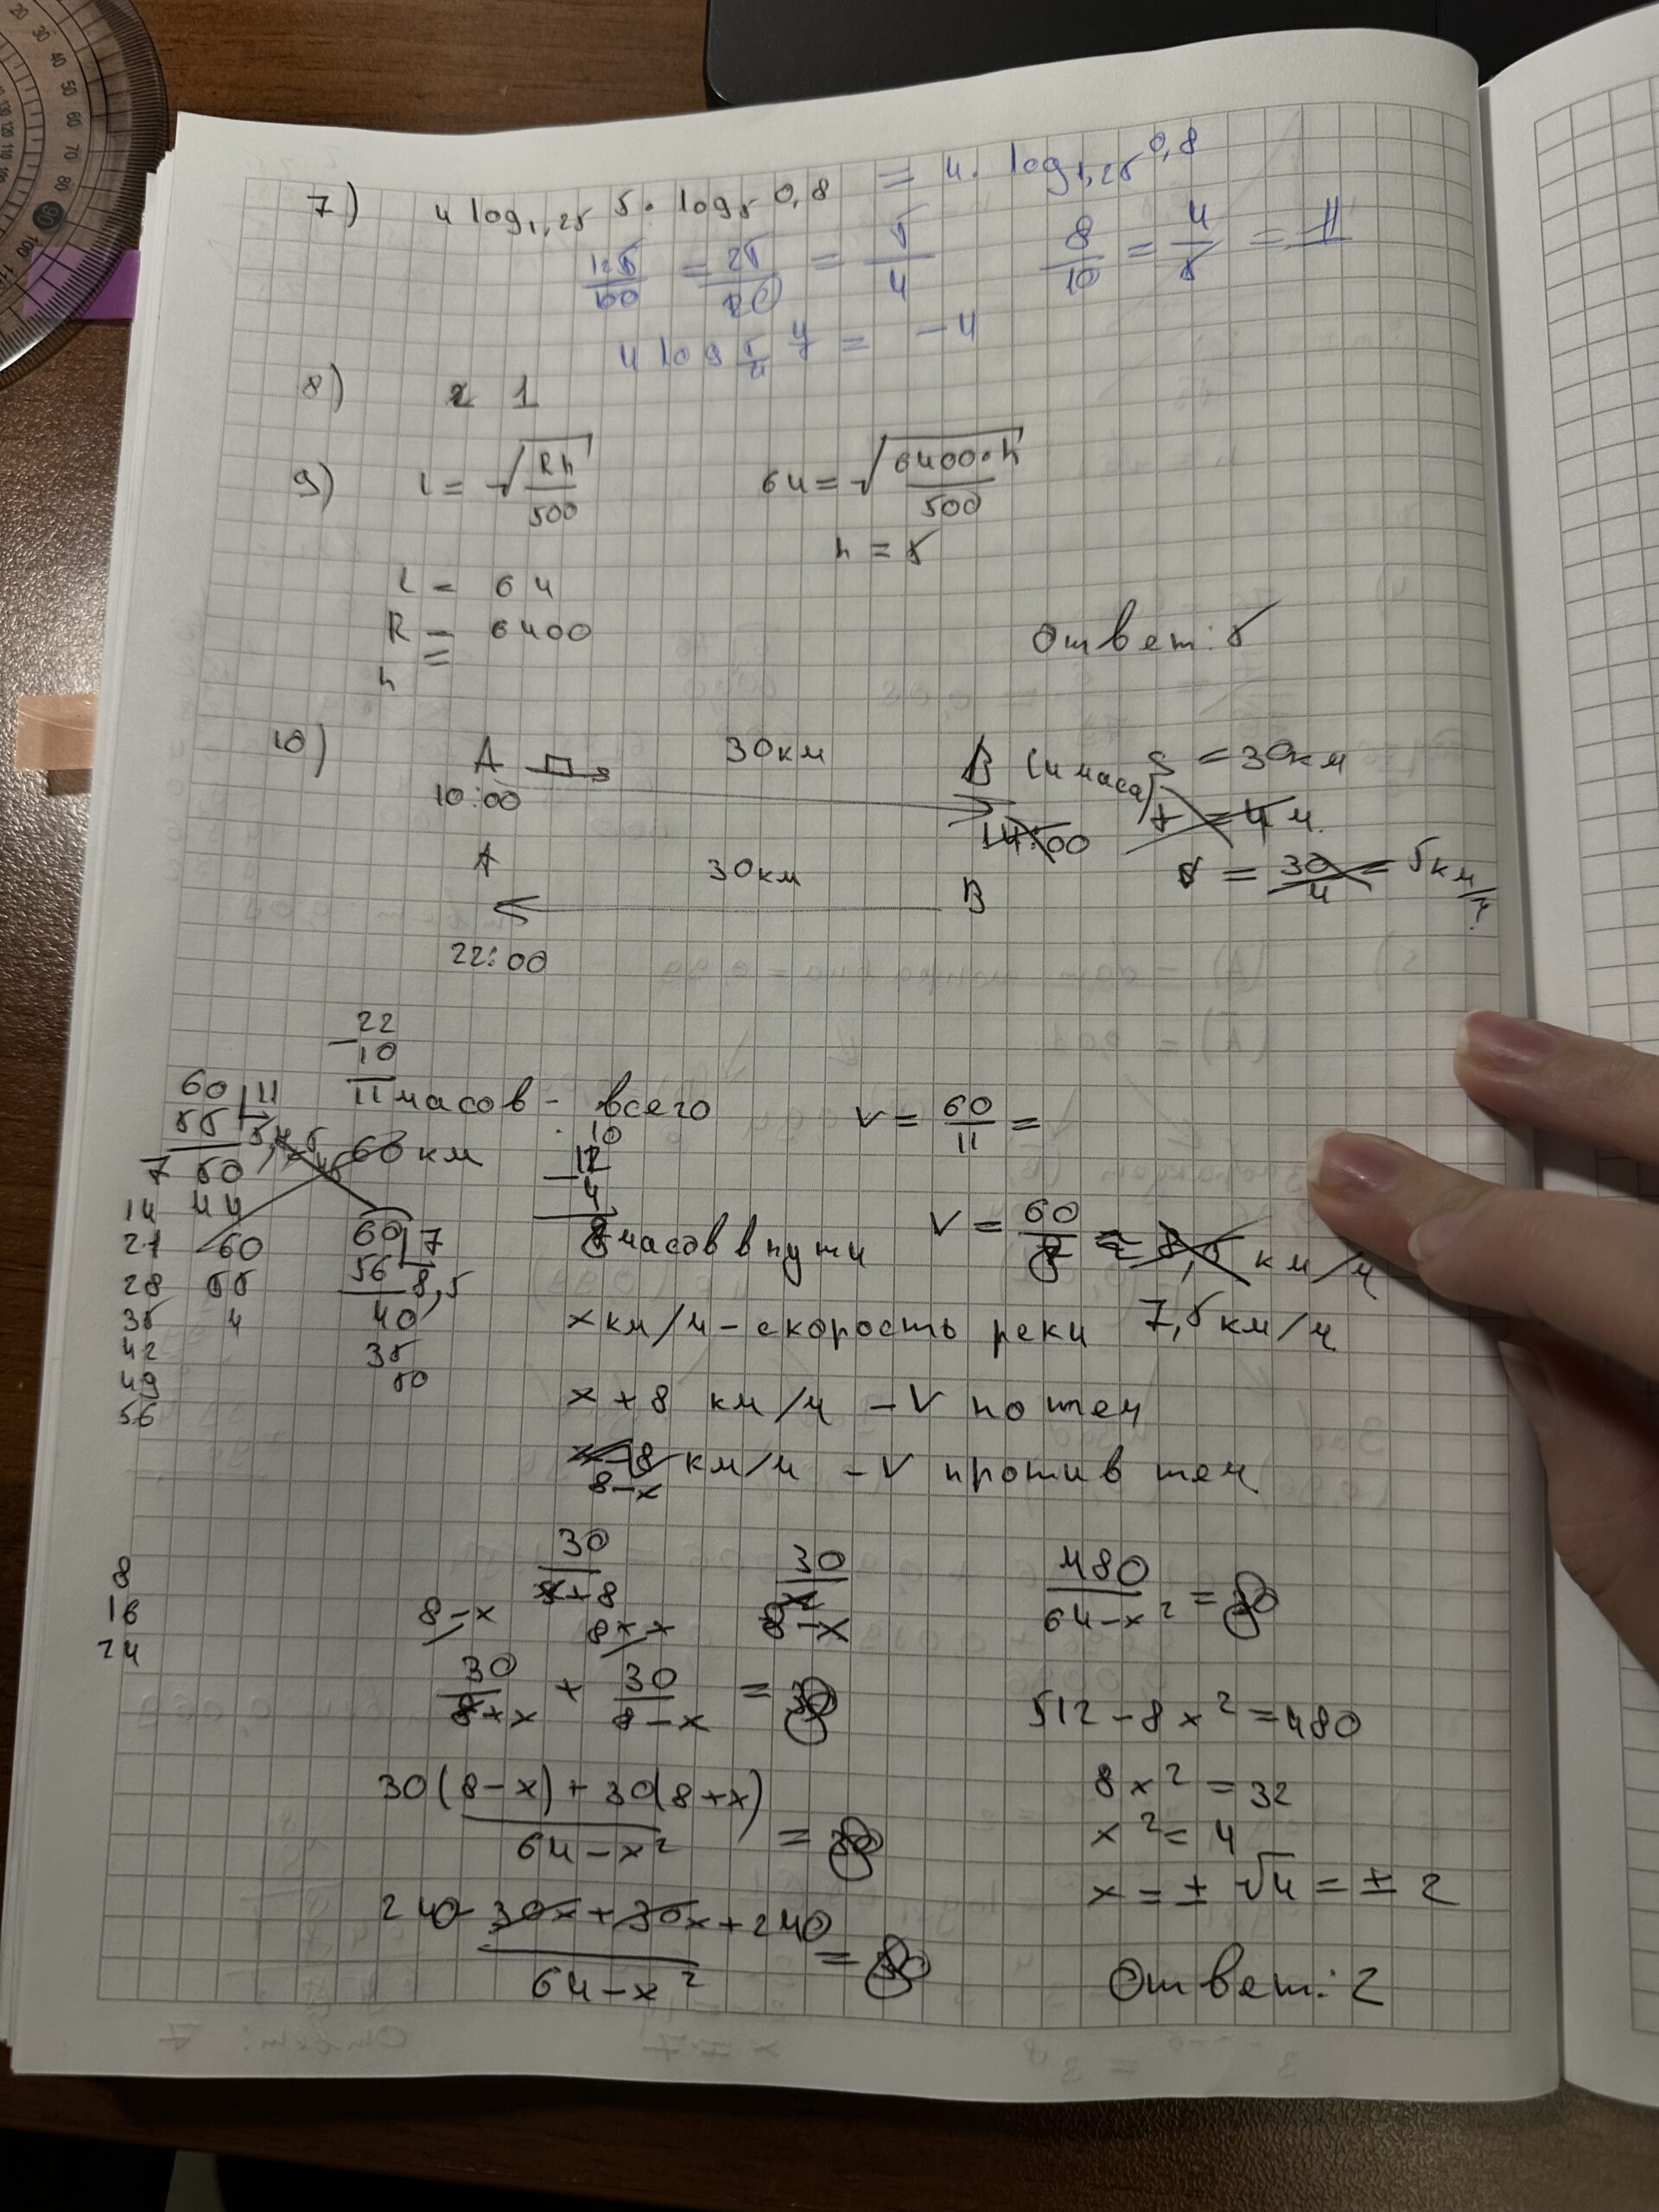 7) 4 log₁,₂₅ 5 · log₅ 0,8 = 4 · log₁,₂₅ 0,8
125/100 = 25/20 = 5/4 8/10 = 4/5 =
4 log 5/4 = -4
8) 1
9) l = √(Rh/500) 64 = √(6400·h/500)
h = 5
l = 64
R = 6400
h =
Ответ: 5
10) A 30 км B (4 часа) S = 30 км
10:00 14:00 t = 4 ч.
A 30 км B = 30/4 = 5 км/ч
22:00
22
-10
11 часов - всего V = 60/11 =
60 | 11
55 5,45
50
44
60
55
4
60 км
12
-4
8 часов в пути V = 60/8 = 8,5 км/ч
60 | 7
56 8,5
40
35
50
7
14
21
28
35
42
49
56
x км/ч - скорость реки 7,5 км/ч
x + 8 км/ч - V по теч
8 - x км/ч - V против теч
8
16
24
30/(x+8) 30 480/(64-x²) = 8
8-x 8+x 8-x
30/(8+x) + 30/(8-x) = 8
512 - 8x² = 480
(30(8-x) + 30(8+x))/(64-x²) = 8
8x² = 32
x² = 4
(240 - 30x + 30x + 240)/(64-x²) = 8
x = ± √4 = ± 2
Ответ: 2